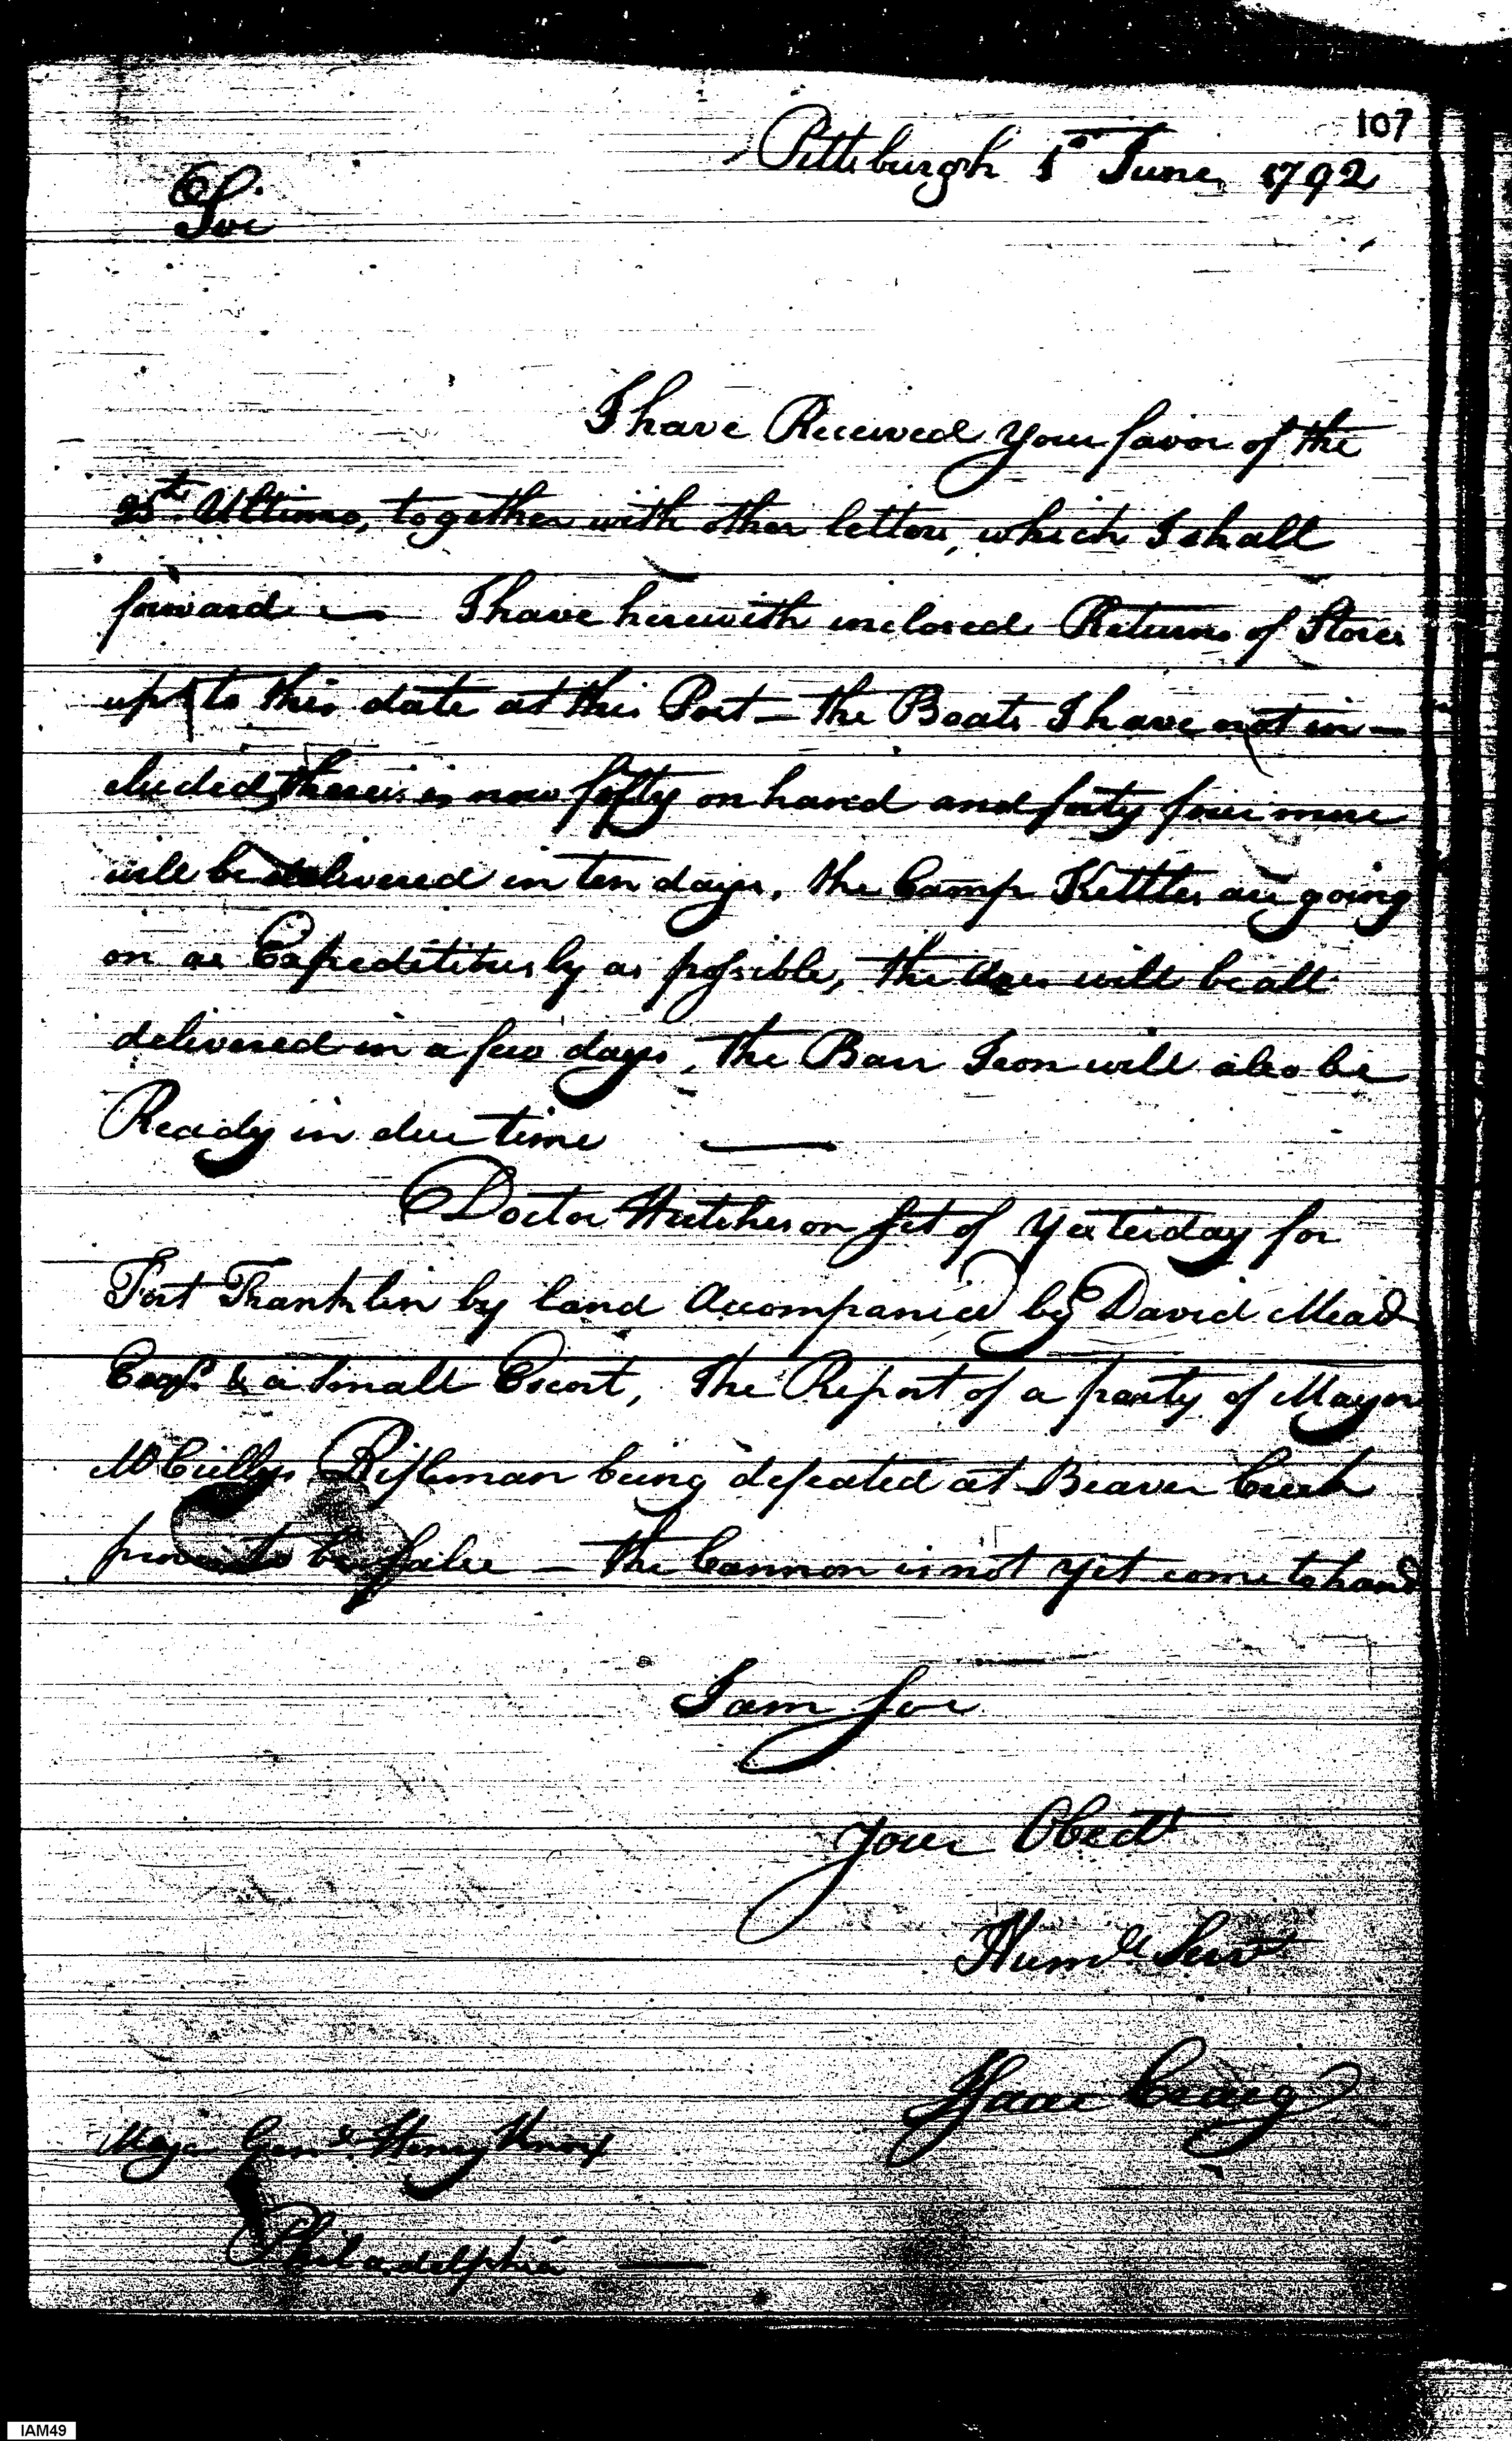 107
Pittsburgh 1st June 1792
Sir
I have Received your favor of the
25th Ultimo, together with other letters, which I shall
forward — I have herewith inclosed Returns of Stores
up to this date at this Post — the Boats I have not in-
cluded, there is now fifty on hand and forty four more
will be delivered in ten days, the Camp Kettles are going
on as Expeditiously as possible, the Axes will be all
delivered in a few days, the Barr Iron will also be
Ready in due time —
Doctor Hutcheson set of Yesterday for
Fort Franklin by land Accompanied by David Mead
Esqr. & a Small Escort, the Report of a party of Mayor
McCullys Rifleman being defeated at Beaver Creek
proves to be false — the Cannon is not yet come to hand
I am Sir
Your Obedt
Humle Servt
Isaac Craig
Majr Genl Henry Knox
Philadelphia —
IAM49